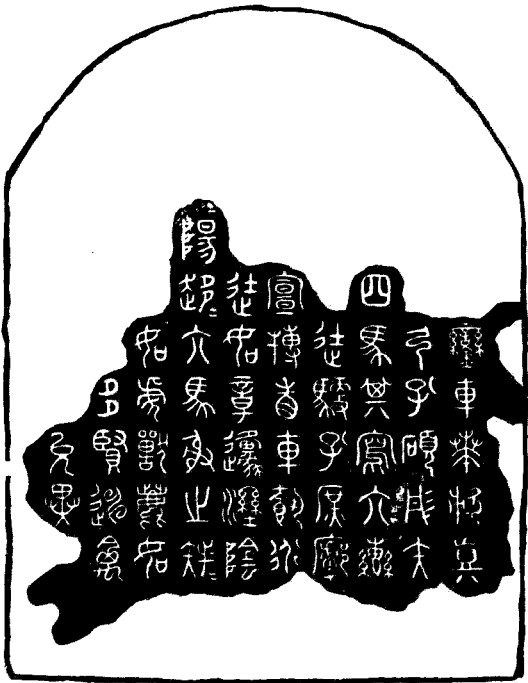 鑾車𠦪敕真
弓孔碩彤矢
四馬其寫六轡
徒馭孔庶廓
宣搏眚車載行
徒如章邍溼陰
陽趍=六馬射之
如虎獸鹿如
多賢迧禽
允異